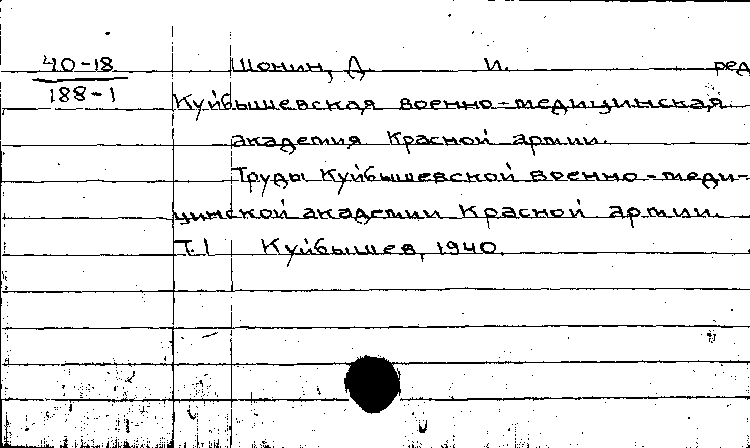 40-18
188-1
Шонин, Д. И. ред
Куйбышевская военно-медицинская
академия Красной армии.
Труды Куйбышевской военно-меди-
цинской академии Красной армии.
Т.1 Куйбышев, 1940.